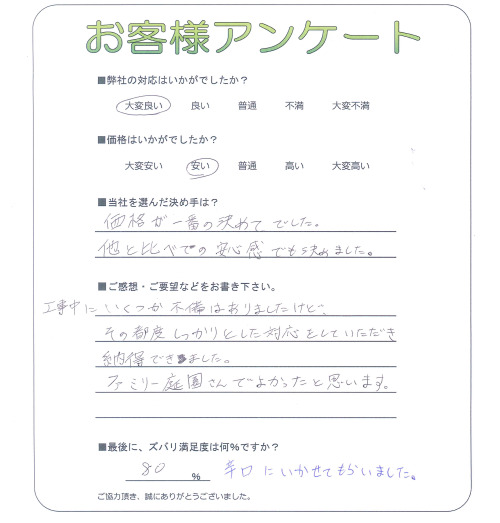 お客様アンケート
■弊社の対応はいかがでしたか?
大変良い 良い 普通 不満 大変不満
■価格はいかがでしたか?
大変安い 安い 普通 高い 大変高い
■当社を選んだ決め手は?
価格が一番の決めてでした。
他と比べての安心感でも決めました。
■ご感想・ご要望などをお書き下さい。
工事中にいくつか不備はありましたけど、
その都度しっかりとした対応をしていただき
納得できました。
ファミリー庭園さんでよかったと思います。
■最後に、ズバリ満足度は何%ですか?
80 % 辛口にいかせてもらいました。
ご協力頂き、誠にありがとうございました。